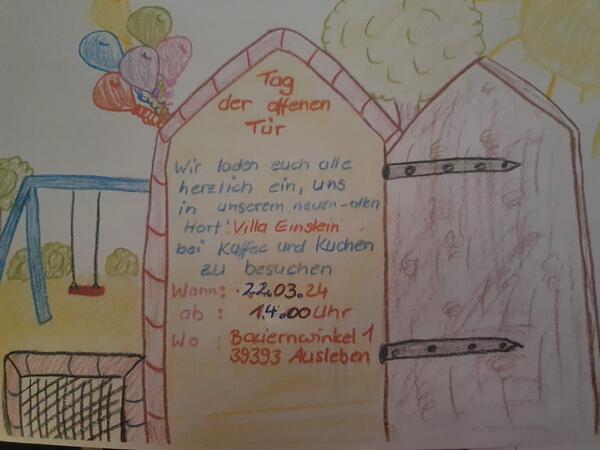 Tag
der offenen
Tür
Wir laden euch alle
herzlich ein, uns
in unserem neuen-alten
Hort! Villa Einstein
bei Kaffee und Kuchen
zu besuchen
Wann: 22.03.24
ab : 14.00 Uhr
Wo : Bauernwinkel 1
39393 Ausleben